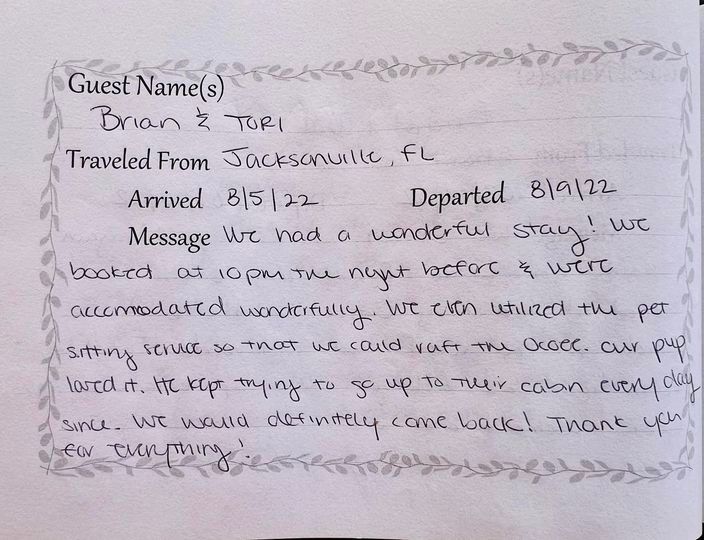 Guest Name(s)
Brian & TORI
Traveled From Jacksonville, FL
Arrived 8/5/22 Departed 8/9/22
Message We had a wonderful stay! We
booked at 10pm the night before & were
accomodated wonderfully. We even utilized the pet
sitting service so that we could raft the Ocoee. Our pup
loved it. He kept trying to go up to their cabin every day
since. We would definitely come back! Thank you
for everything!